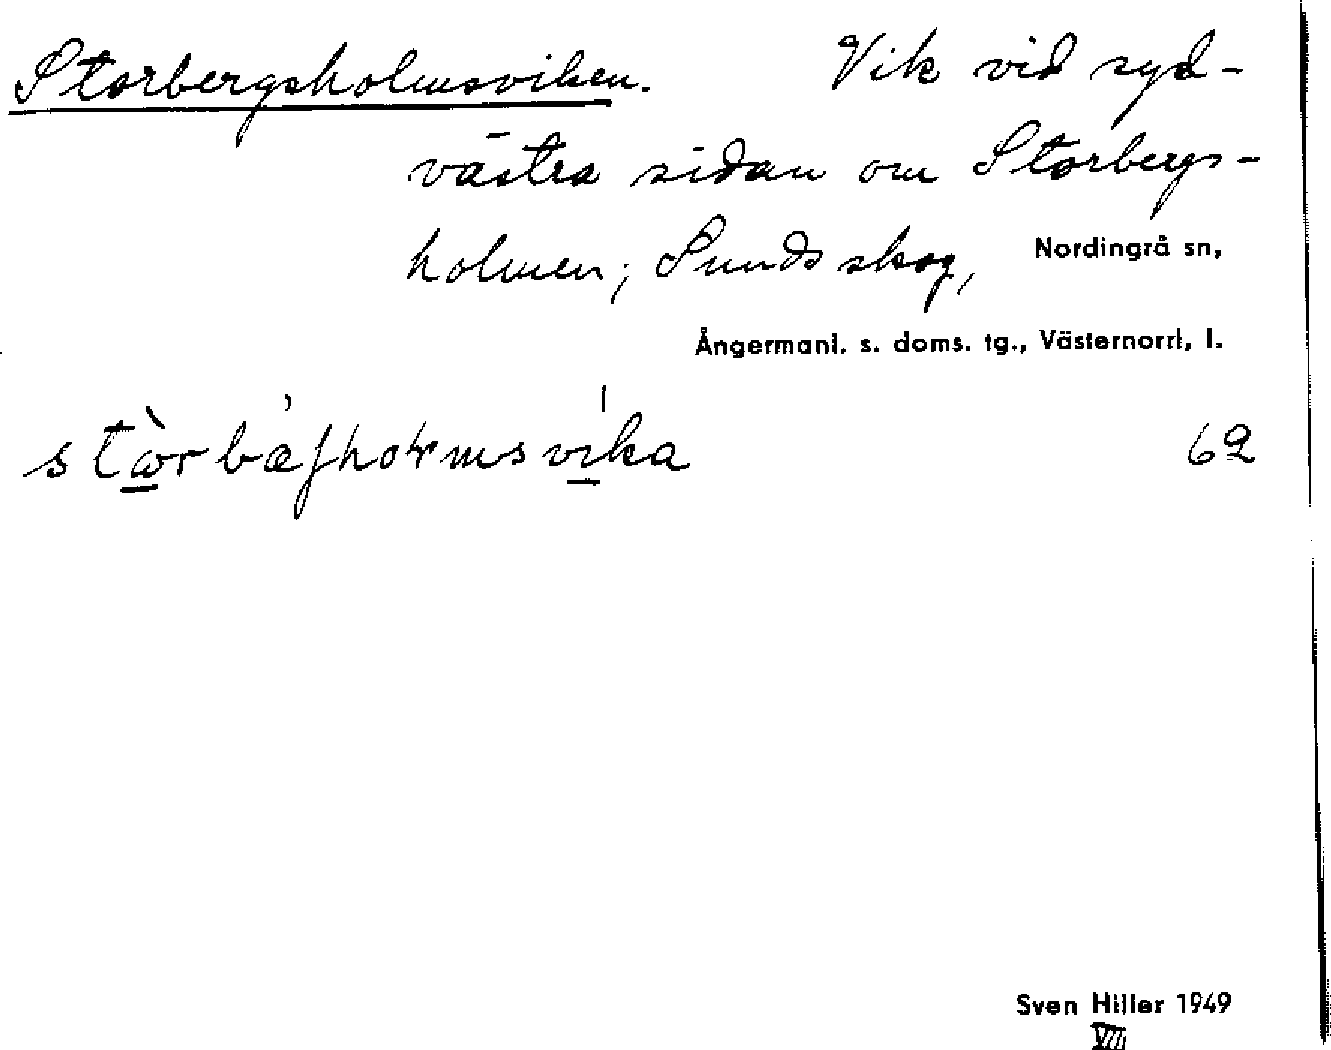 Storbergsholmsviken. Vik vid syd-
västra sidan om Storbergs-
holmen; Sundsskog, Nordingrå sn,
Ångermanl. s. doms. tg., Västernorrl. l.
62
Sven Hiller 1949
VIII